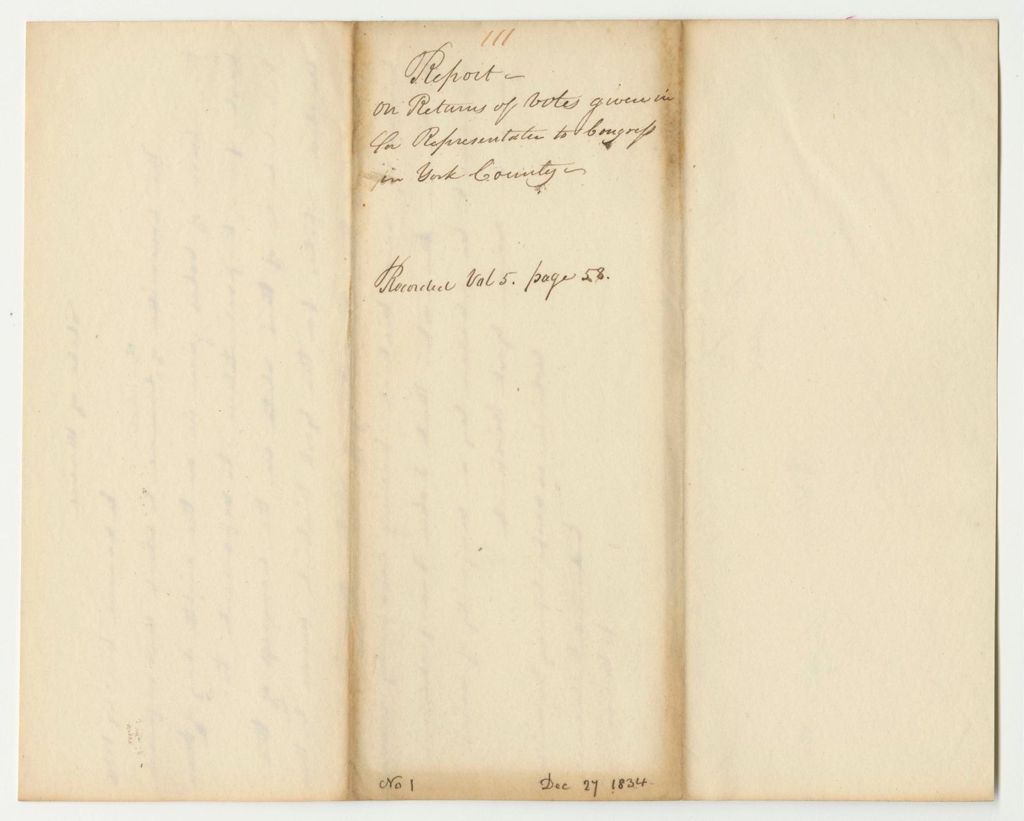 111
Report –
on Returns of Votes given in
for Representative to Congress
in York County –
Recorded Vol 5. page 58.
No 1 Dec 27 1834